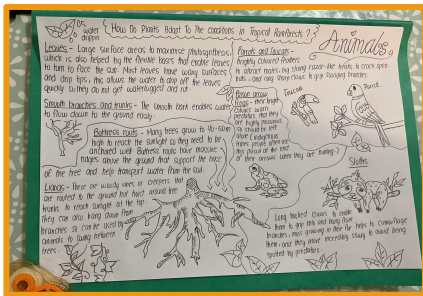 How Do Plants Adapt To The Conditions in Tropical Rainforests?
Animals
water
dripping
Leaves - Large surface areas to maximise photosynthesis,
which is also helped by the flexible bases that enable leaves
to turn to face the sun. Most leaves have waxy surfaces
and drip tips, this allows the water to drip off the leaves
quickly so they do not get waterlogged and rot.
Smooth branches and trunks - The smooth bark enables water
to flow down to the ground easily
Buttress roots - Many trees grow to 40-50m
high to reach the sunlight so they need to be
anchored well. Buttress roots have massive
ridges above the ground that support the base
of the tree and help transport water from the soil.
Lianas - These are woody vines or creepers that
are rooted to the ground but hoist around tree
trunks to reach sunlight at the top.
They can also hang down from
branches so can be used by
animals to swing between
trees.
Parrots and toucans -
Brightly coloured feathers
to attract mates, big strong razor-like beaks to crack open
nuts and long sharp claws to grip swinging branches.
Poison arrow
frogs - their bright
colours warn
predators that they
are highly poisonous
so should be left
alone (indigenous
tribes people often use
this poison at the end
of their arrows when they are hunting!)
Toucan
Parrot
Sloths
Long hooked claws to enable
them to grip onto and hang from
branches, moss growing in their fur helps to camouflage
them and they move incredibly slowly to avoid being
spotted by predators.